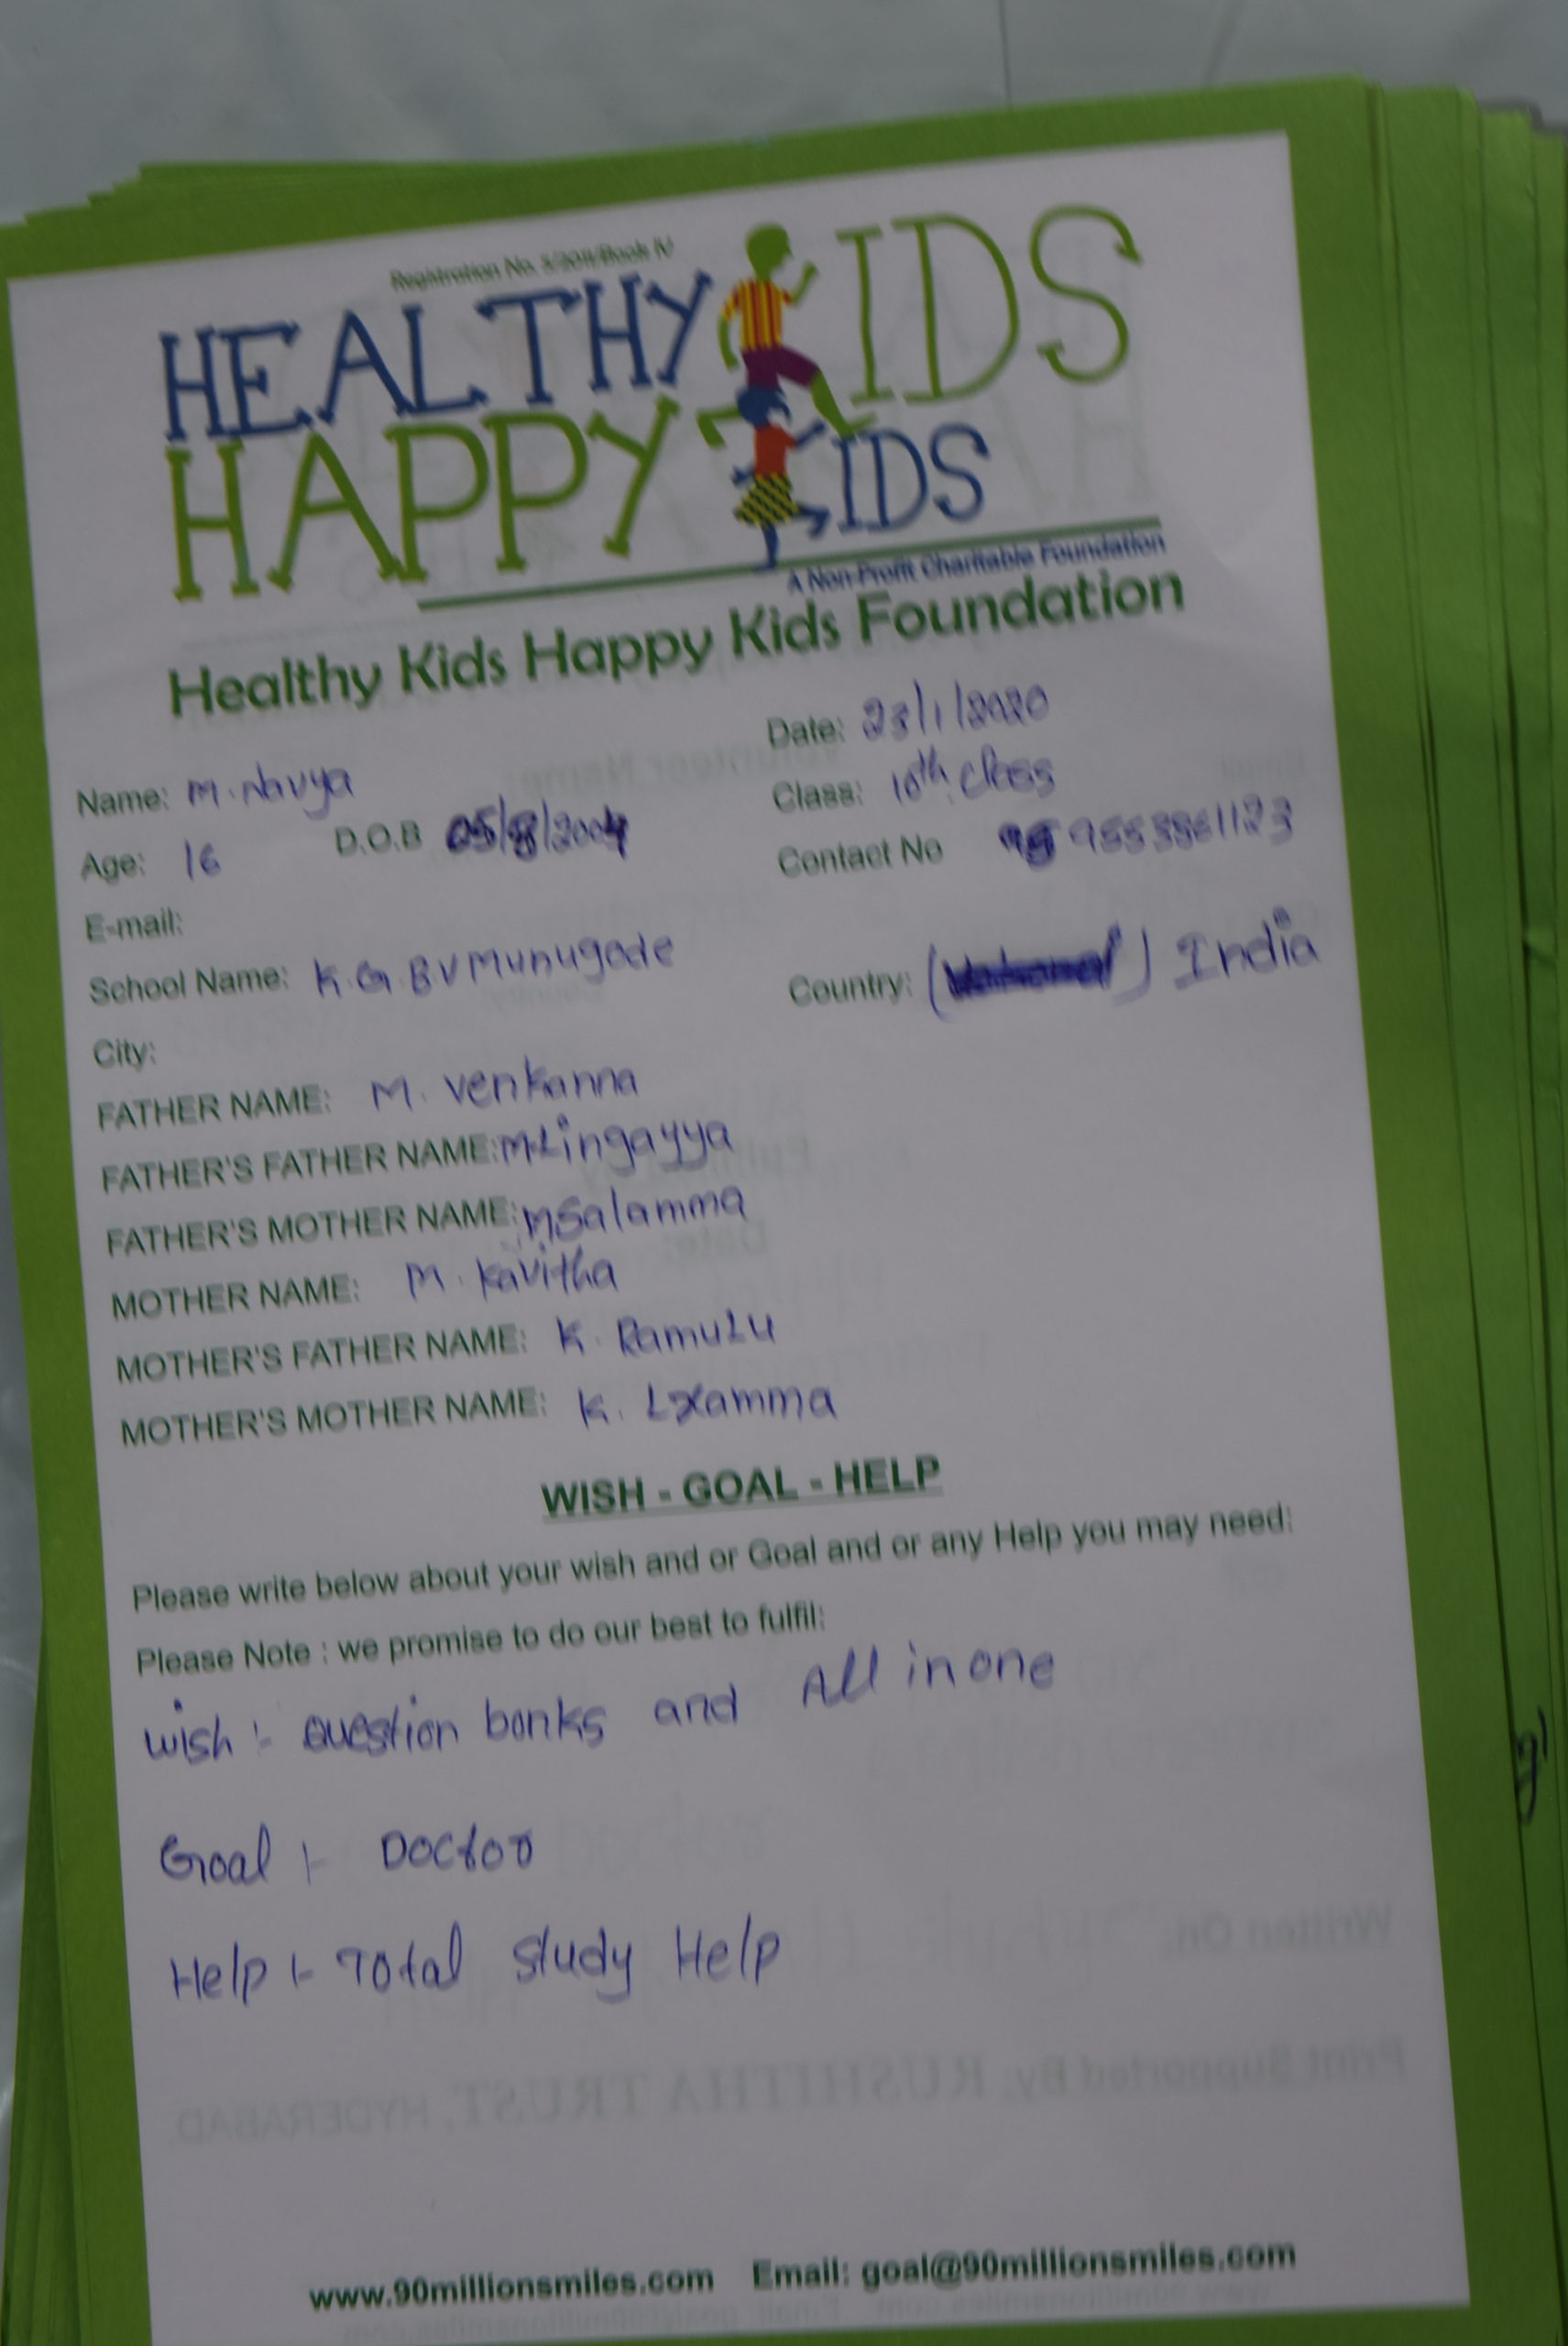 Registration No. 5/2011/Book IV
HEALTHY KIDS
HAPPY KIDS
A Non-Profit Charitable Foundation
Healthy Kids Happy Kids Foundation
Date: 23/1/2020
Name: M. Navya
Class: 10th class
Age: 16 D.O.B 05/8/2004
Contact No 9553861123
E-mail:
School Name: K.G.B.V Munugode
Country: ( ) India
City:
FATHER NAME: M. Venkanna
FATHER'S FATHER NAME: M.Lingayya
FATHER'S MOTHER NAME: M Salamma
MOTHER NAME: M. Kavitha
MOTHER'S FATHER NAME: K. Ramulu
MOTHER'S MOTHER NAME: K. Lxamma
WISH - GOAL - HELP
Please write below about your wish and or Goal and or any Help you may need:
Please Note : we promise to do our best to fulfil:
Wish :- Question banks and All in one
Goal :- Doctor
Help :- Total study Help
www.90millionsmiles.com Email: goal@90millionsmiles.com